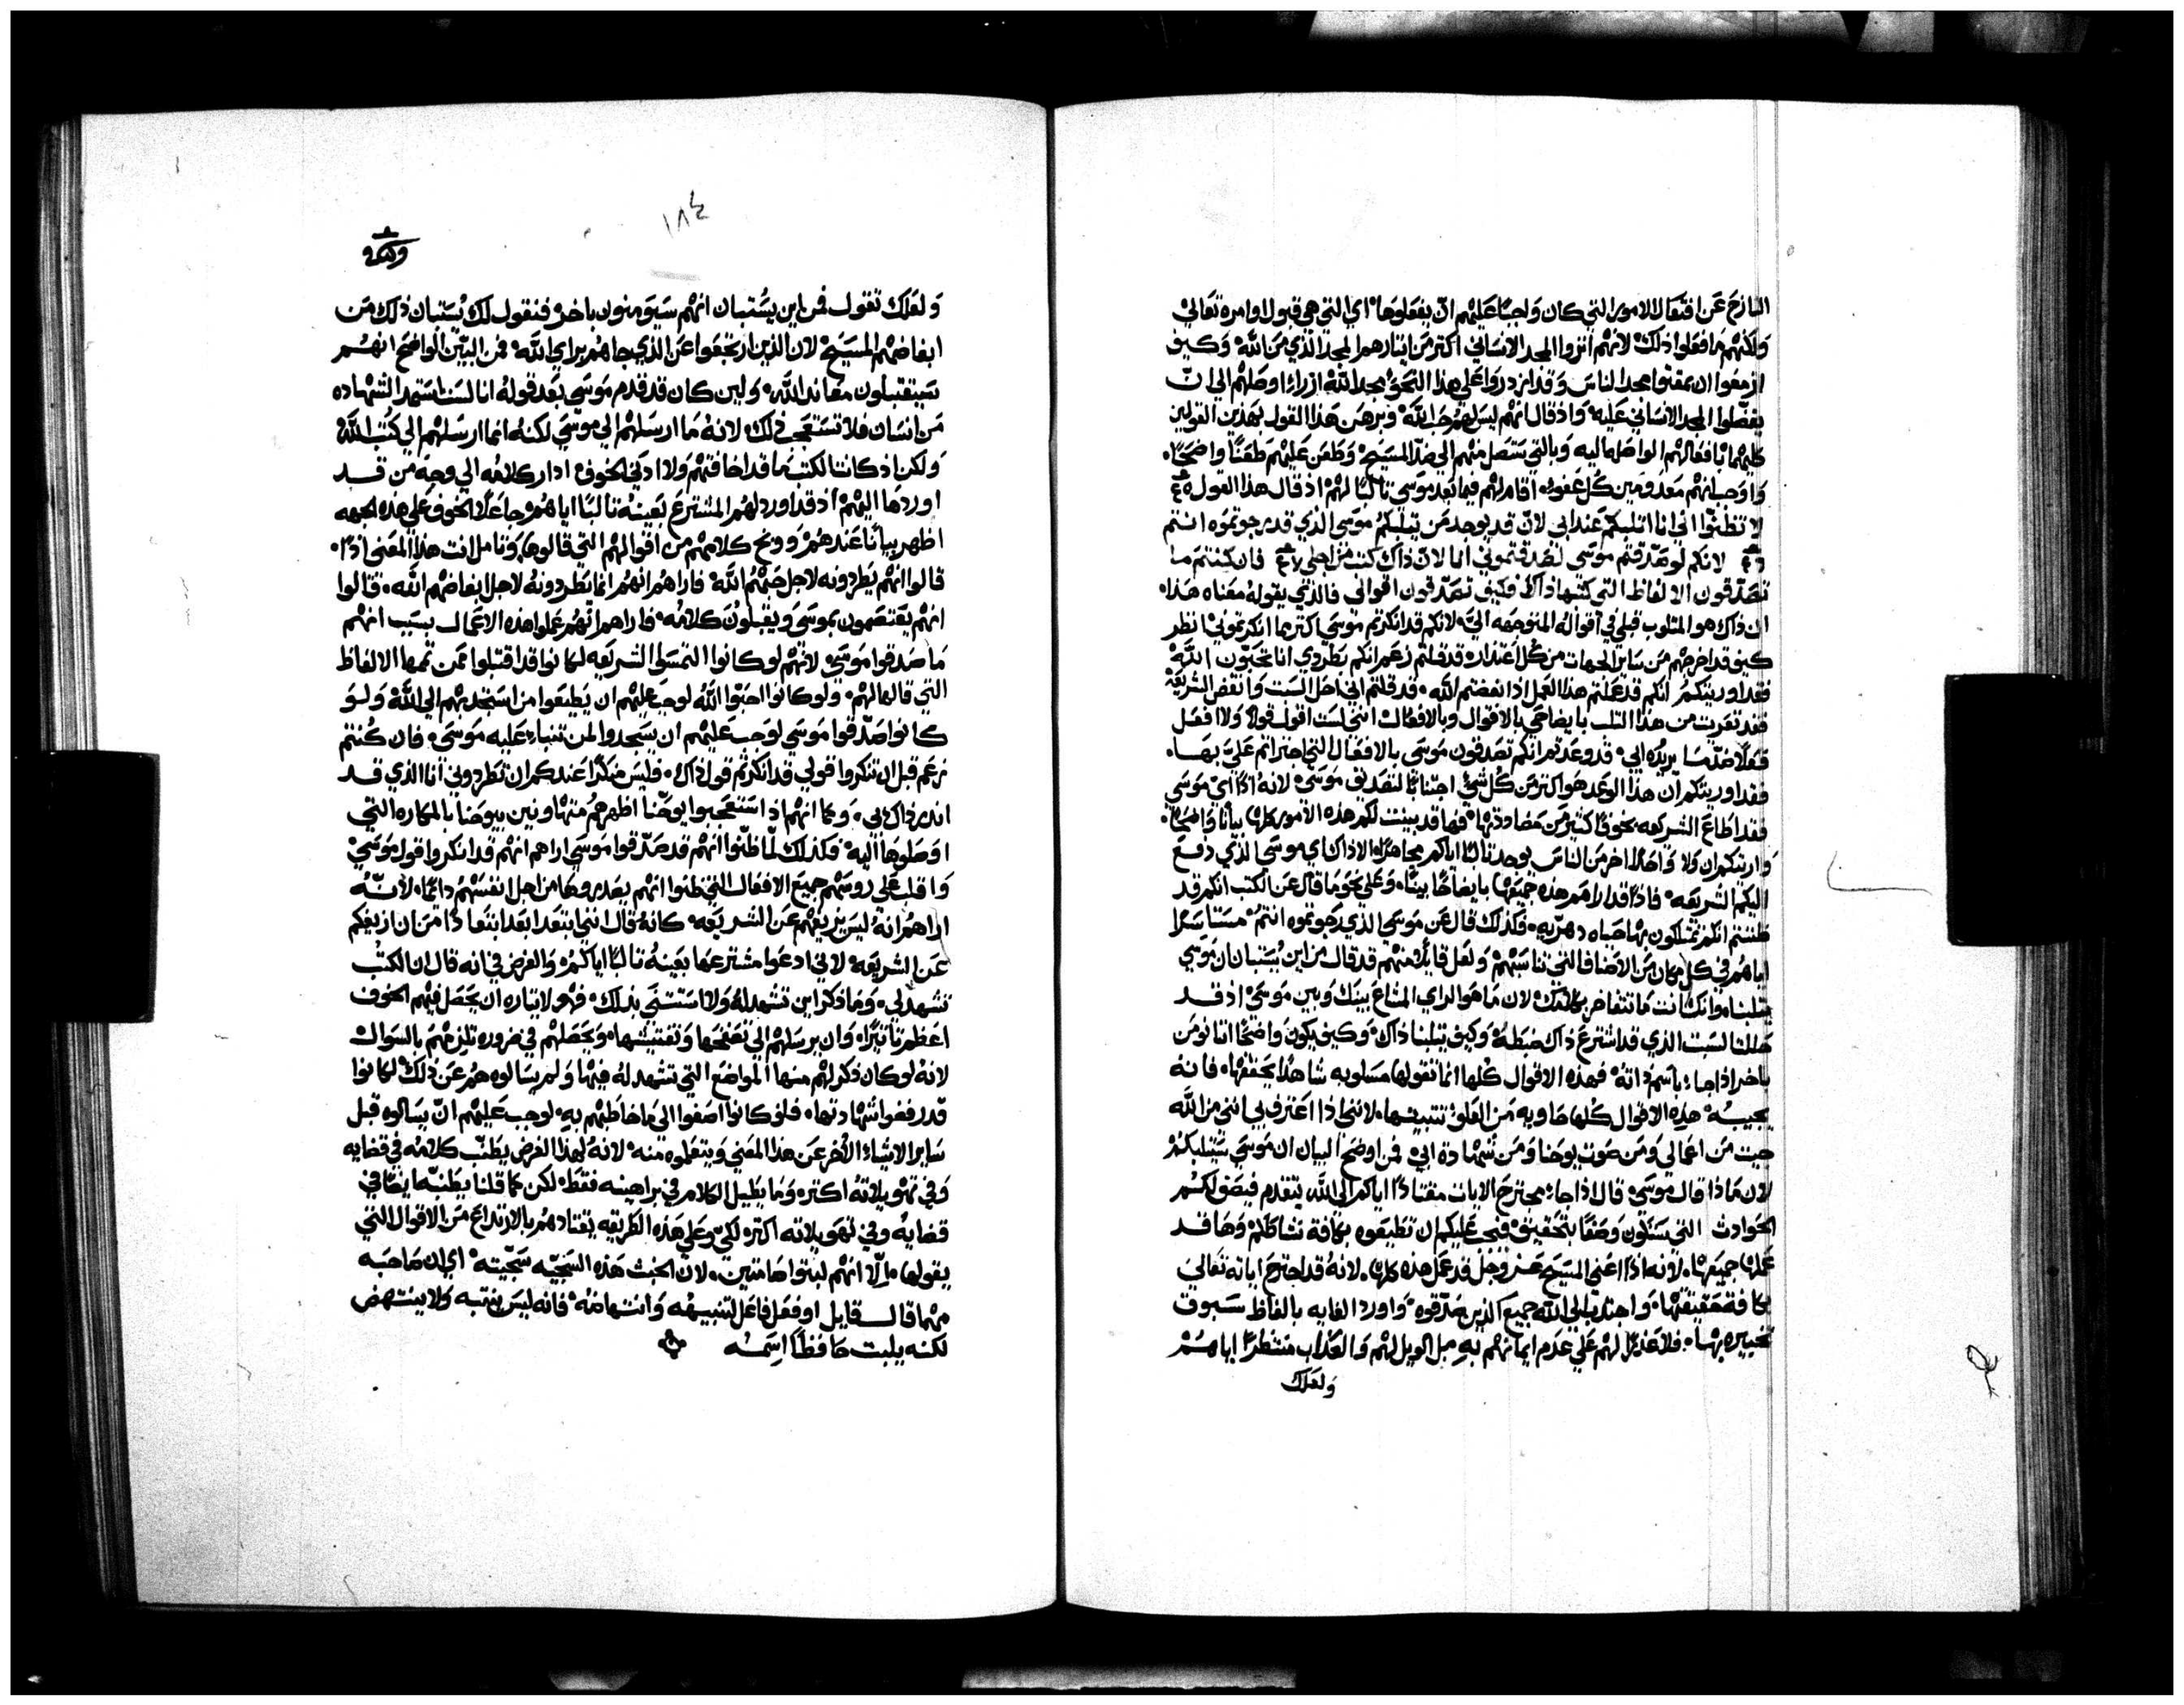 النازح عن افتعال الامور التي كان واجبًا عليهم ان يفعلوها اي التي هي قبول اوامره تعالي
ولكنهم ما فعلوا ذلك لانهم اثروا المجد الانساني اكثر من ايثارهم المجد الذي من الله وكيف
ازمعوا ان يمقتوا مجد الناس وقد ازدروا علي هذا النحو بمجد الله ازراءا اوصلهم الي ان
يفضلوا المجد الانساني عليه واذ قال انهم ليس لهم حب الله وبرهن هذا القول بهذين القولين
كليهما بافعالهم الواصله اليه وبالتي ستصل منهم الي ضد المسيح وطعن عليهم طعنًا واضحًا
واوجب انهم معدومين كل عفو اقام لهم فيما بعد موسي ثالبًا لهم اذ قال هذا القول
لا تظنوا اني انا اثلبكم عند ابي لان قد يوجد من يثلبكم موسي الذي قد رجوتموه انتم
لانكم لو صدقتم موسي لصدقتموني انا لان ذاك كتب من اجلي فان كنتم ما
تصدقون الالفاظ التي كتبها ذاك فكيف تصدقون اقوالي فالذي يقوله معناه هذا
ان ذاك هو المثلوب قبلي في اقواله المتوجهه الي لانكم قد انكرتم موسي اكثر مما انكرتموني انظر
كيف قد اخرجهم من ساير الجهات من كل اعتذار قد قلتم زعم انكم بطردي انا تحبون الله
فقد اوريتكم انكم قد عملتم هذا العمل اذ ابغضتم الله قد قلتم اني احل السبت وانقض الشريعه
فقد تعريت من هذا الثلب بايضاحي بالاقوال وبالافعال انني لست اقول قولًا ولا افعل
فعلًا ضد ما يريده ابي قد وعدتم انكم تصدقون موسي بالافعال التي اجتراتم علي بها
فقد اوريتكم ان هذا الوعد هو اكثر من كل شي اجتنابًا لتصديق موسي لانه اذًا اي موسي
فقد اطاع الشريعه بخوفًا كثير من مضاددتها فها قد بينت لكم هذه الامور كلها بيانًا واضحًا
واريتكم ان ولا واحدًا اخر من الناس يوجد ثالبًا اياكم مجاهرًا الا ذاك اي موسي الذي دفع
اليكم الشريعه فاذًا قد لامهم هذه جميعها بايضاحًا بينًا وعلي نحو ما قال عن الكتب انكم قد
ظننتم انكم تمتلكون بها حياه دهريه فكذلك قال عن موسي الذي رجوتموه انتم مستاسرًا
اياهم في كل مكان من الاصناف التي تناسبهم ولعل قايلًا منهم قد قال من اين يستبان ان موسي
يثلبنا وانك انت ما تتفاخر بكلامك لان ما هو الراي المشاع بينك وبين موسي اذ قد
حللت السبت الذي قد اشترع ذاك ضبطه وكيف يثلبنا ذاك وكيف يكون واضحًا اننا نومن
باخر اذا جاء باسم ذاته فهذه الاقوال كلها انما تقولها مسلوبه شاهدًا يحققها فانه
يجيبه هذه الاقوال كلها حاويه من العلو تثبيتها لانني اذا اعترف بي انني من الله
جيت من اعمالي ومن صوت يوحنا ومن شهادة ابي فمن اوضح البيان ان موسي سيثلبكم
لان ماذا قال موسي قال اذا جاء مجترح الايات مقتادًا اياكم الي الله يتقدم فيصف لكم
الحوادث التي ستكون وصفًا بتحقيق فيجب عليكم ان تطيعوه بكافة نشاطكم وها قد
عملها جميعها لانه اذا اعني المسيح عز وجل قد عمل هذه كلها لانه قد اجترح اياته تعالي
بكافة حقيقتها واجتذب الي الله جميع الذين صدقوه واورد الغايه بالفاظ سبوق
تخبيره بها فلا عذرًا لهم علي عدم ايمانهم به مبل الويل لهم والعذاب منتظرًا اياهم
ولعلك
١٨٤
ولعلك تقول فمن اين يستبان انهم سيومنون باخر فنقول لك يستبان ذلك من
ابغاضهم المسيح لان الذين ارتجفوا عن الذي جاهم براي الله فمن البين الواضح انهم
سيتقبلون معاند الله ولين كان قد قدم موسي بعد قوله انا لست استمد الشهاده
من انسان فلا تستعجب ذلك لانه ما ارسلهم الي موسي لكنه انما ارسلهم الي كتب الله
ولكن اذ كانت الكتب ما قد اخافتهم ولا ادني الخوف ادار كلامه الي وجه من قد
اوردها اليهم اذ قد اورد لهم المشترع بعينه ثالبًا اياهم جاعلًا الخوف علي هذه الجهه
اظهر بيانًا عندهم ووبخ كلامهم من اقوالهم التي قالوها وتامل انت هذا المعني اذًا
قالوا انهم يطردونه لاجل حبهم الله فاراهم انهم انما يطردونه لاجل ابغاضهم الله قالوا
انهم يعتصمون بموسي ويقبلون كلامه فاراهم انهم عملوا هذه الاعمال بسبب انهم
ما صدقوا موسي لانهم لو كانوا التمسوا الشريعه لكانوا قد اقتبلوا ممن تممها الالفاظ
التي قالها لهم ولو كانوا احبوا الله لوجب عليهم ان يطيعوا من استجدبهم الي الله ولو
كانوا صدقوا موسي لوجب عليهم ان يسجدوا لمن تنباء عليه موسي فان كنتم
زعم قبل ان تنكروا قولي قد انكرتم قول ذاك فليس منكرًا عندكم ان تطردوني انا الذي قد
انذر ذاك بي وكما انهم اذ استعجبوا يوحنا اظهرهم متهاونين بيوحنا بالمكاره التي
اوصلوها اليه فكذلك لما ظنوا انهم قد صدقوا موسي اراهم انهم قد انكروا قول موسي
واقلب علي روسهم جميع الافعال التي ظنوا انهم يعدروها من اجل انفسهم دائمًا لانه
اراهم انه ليس يزيغهم عن الشريعه كانه قال انني ابتعد ابعد ابتعادًا من ان ازيغكم
عن الشريعه لاني ادعوا مشترعها بعينه ثالبًا اياكم والغرض في انه قال ان الكتب
تشهد لي وما ذكر اين تشهد له ولا استثنى بذلك فهو لايثاره ان يحصل فيهم الخوف
اعظم تاثيرًا وان يرسلهم الي تصفحها وتفتيشها ويجعلهم في ضروره تلزمهم بالسوال
لانه لو كان ذكر لهم منها المواضع التي تشهد له فيها ولم يسالوه هم عن ذلك لكانوا
قد رفضوا شهادتها فلو كانوا اصغوا الي ما خاطبهم به لوجب عليهم ان يسالوه قبل
ساير الاشياء الاخر عن هذا المعني ويتعلموه منه لانه لهذا الغرض يطنب كلامه في قضايه
وفي تهويلاته اكثر وما يطيل الكلام في براهينه فقط لكن كما قلنا يطنبه ايضًا في
قضايه وفي تهويلاته اكثر لكي وعلي هذه الطريقه يقتادهم بالارتداع من الاقوال التي
يقولها الا انهم لبثوا صامتين لان الخبث هذه السجيه سجيته اي ان صاحبه
مهما قال قايل او فعل فاعل لتنبيهه وانتهاضه فانه ليس ينتبه ولا ينتهض
لكنه يلبث حافظًا اسمه